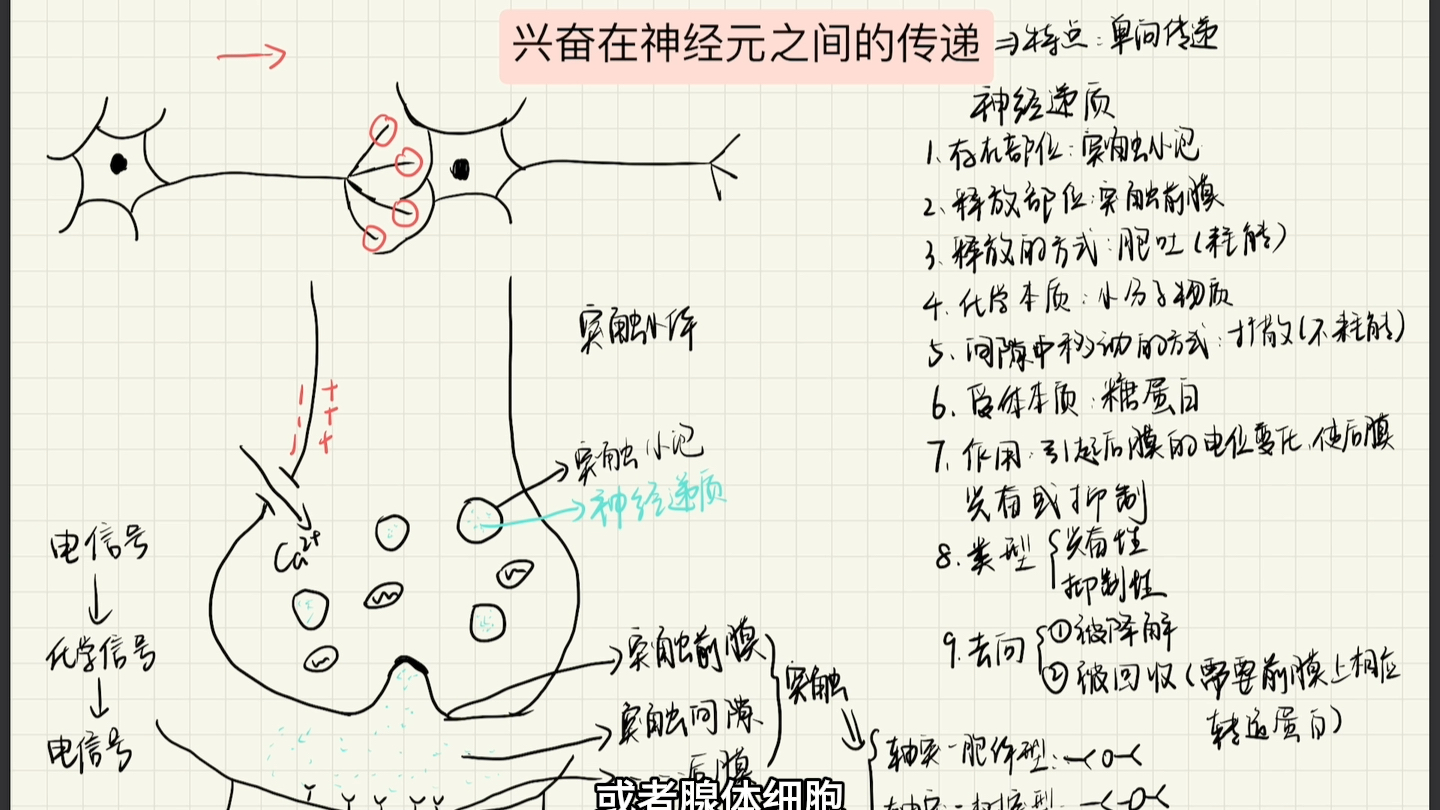 兴奋在神经元之间的传递 ⇒特点:单向传递
神经递质
1.存在部位:突触小泡
2.释放部位:突触前膜
3.释放的方式:胞吐(耗能)
4.化学本质:小分子物质
5.间隙中移动的方式:扩散(不耗能)
6.受体本质:糖蛋白
7.作用:引起后膜的电位变化,使后膜
兴奋或抑制
8.类型 兴奋性
抑制性
9.去向 ①被降解
②被回收(需要前膜上相应
转运蛋白)
突触小体
突触小泡
神经递质
Ca²⁺
电信号
化学信号
电信号
突触前膜
突触间隙
后膜
突触
轴突-胞体型:
或者腺体细胞